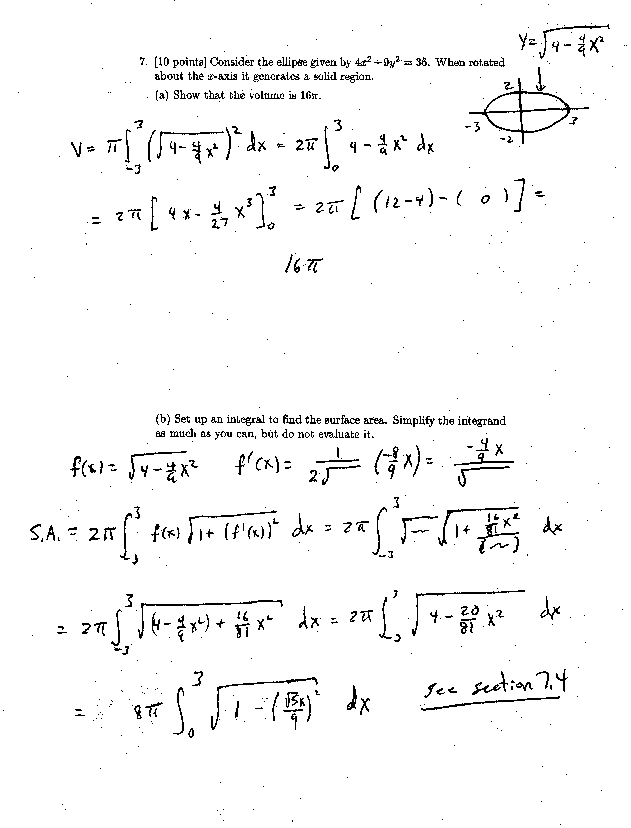 y = √(4 - 4/9 x²)
7. [10 points] Consider the ellipse given by 4x² + 9y² = 36. When rotated
about the x-axis it generates a solid region.
(a) Show that the volume is 16π.
2
-3 3
-2
V = π ∫₋₃³ (√(4 - 4/9 x²))² dx = 2π ∫₀³ 4 - 4/9 x² dx
= 2π [4x - 4/27 x³]₀³ = 2π [(12-4) - ( 0 )] =
16π
(b) Set up an integral to find the surface area. Simplify the integrand
as much as you can, but do not evaluate it.
f(x) = √(4 - 4/9 x²) f'(x) = 1/(2√ ) (-8/9 x) = (-4/9 x)/√
S.A. = 2π ∫₋₃³ f(x) √(1 + (f'(x))²) dx = 2π ∫₋₃³ √~ √(1 + (16/81 x²)/(~)) dx
= 2π ∫₋₃³ √((4 - 4/9 x²) + 16/81 x²) dx = 2π ∫₋₃³ √(4 - 20/81 x²) dx
= 8π ∫₀³ √(1 - (√5x/9)²) dx see section 7.4